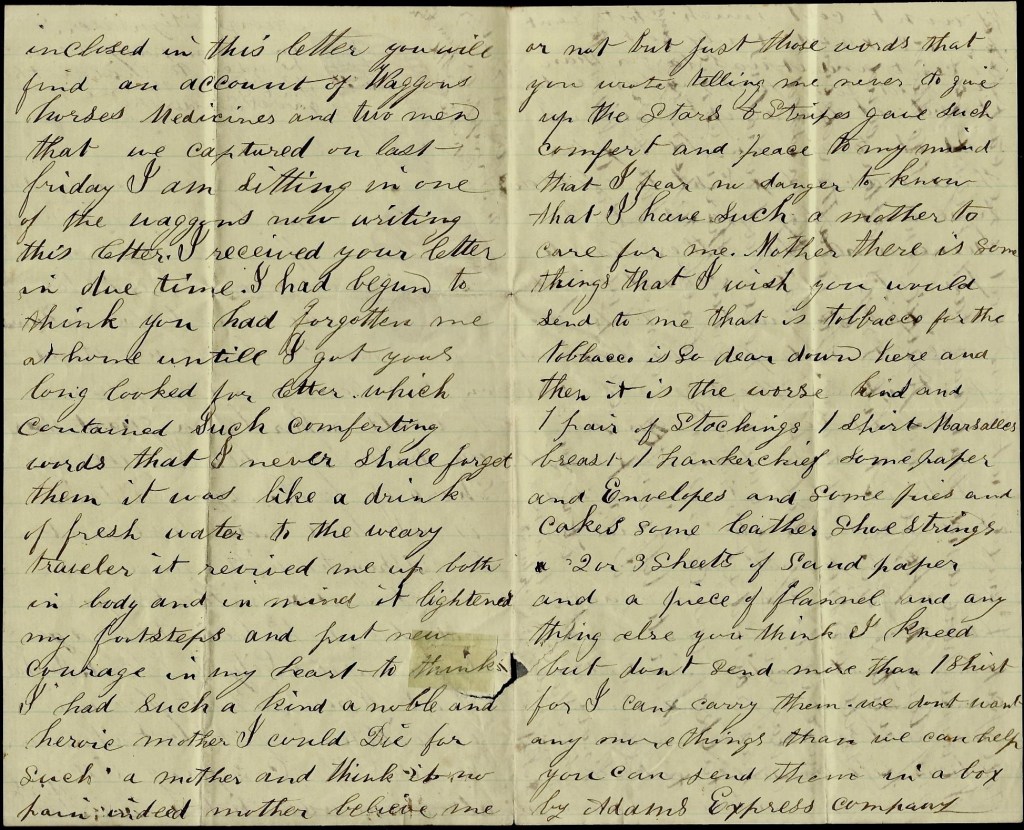 inclosed in this letter you will
find an account of Waggons
horses Medicines and two men
that we captured on last
friday I am sitting in one
of the waggons now writing
this letter. I received your letter
in due time. I had begun to
think you had forgotten me
at home untill I got your
long looked for letter. which
contained such comforting
words that I never shall forget
them it was like a drink
of fresh water to the weary
traveler it revived me up both
in body and in mind it lightened
my footsteps and put new
courage in my heart to think
I had such a kind a noble and
heroic mother I could Die for
such a mother and think it no
pain indeed mother believe me
or not but just those words that
you wrote telling me never to give
up the Stars & Stripes gave such
comfort and peace to my mind
that I fear no danger to know
that I have such a mother to
care for me. Mother there is som
things that I wish you would
send to me that is tobbacco for the
tobbacco is so dear down here and
then it is the worse kind and
1 pair of Stockings 1 Shirt Marsalles
breast 1 hankerchief some paper
and Envelopes and some pies and
cakes some leather shoe strings
2 or 3 Sheets of Sand paper
and a piece of flannel and any
thing else you think I kneed
but dont send more than 1 Shirt
for I can carry them. we dont want
any more things than we can help
you can send them in a box
by Adams Express company